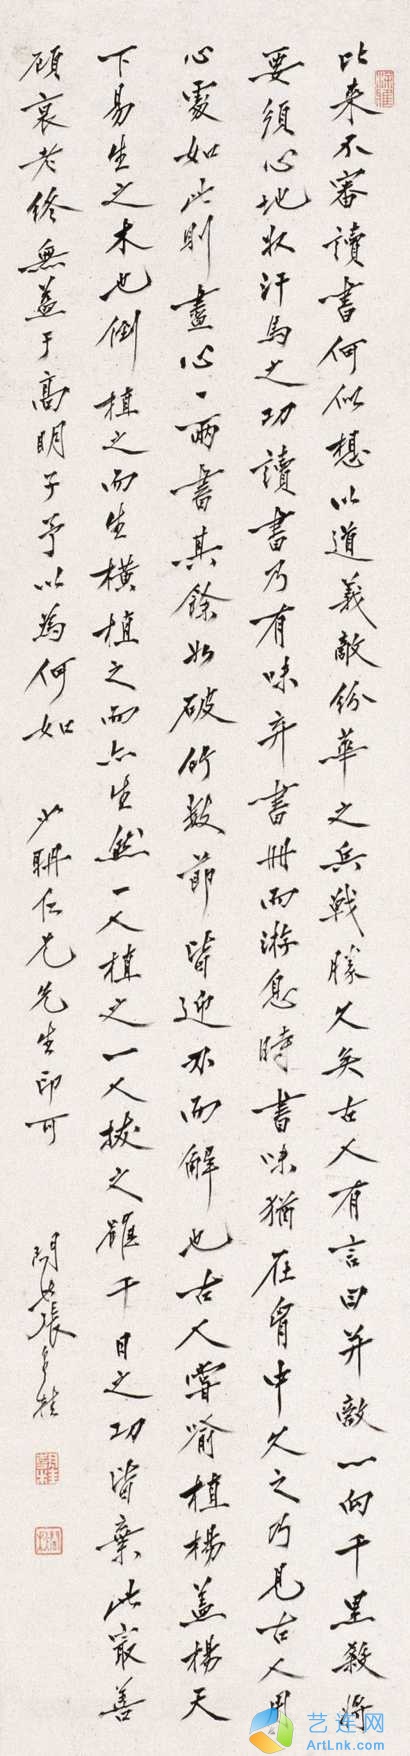 比來不審讀書何似想以道義敵紛華之兵戰勝久矣古人有言曰并敵一向千里殺將
要須心地收汗馬之功讀書乃有味弃書冊而游息時書味猶在胷中久之乃見古人用
心處如此則盡心一兩書其餘如破竹數節皆迎刃而解也古人嘗喻植楊蓋楊天
下易生之木也倒植之而生橫植之而亦生然一人植之一人拔之雖千日之功皆棄此最善
顧衰老終無益于高明子予以為何如 少畊仁兄先生印可
張
艺连网
ArtLnk.com